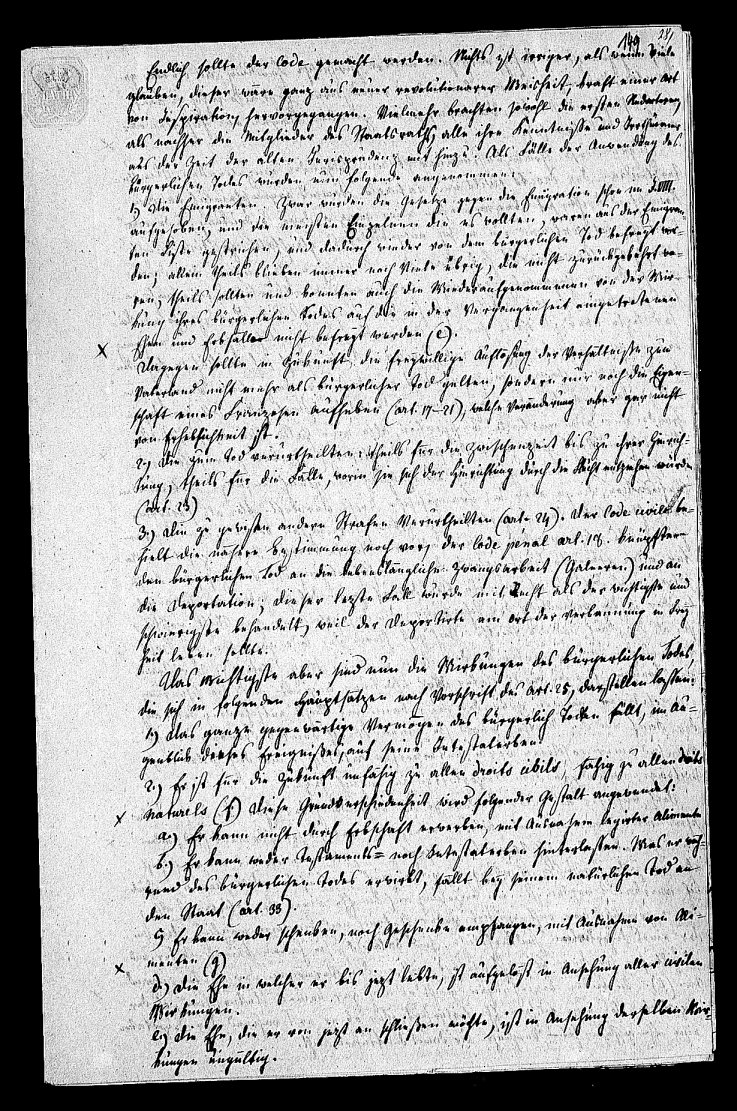 149
281
Endlich sollte der Code gemacht werden. Nichts ist irriger, als wenn Viele
glauben, dieser wäre ganz aus neuer revolutionärer Weisheit, kraft einer Art
von Inspiration, hervorgegangen. Vielmehr brachten sowohl die ersten Redactoren,
als nachher die Mitglieder des Staatsraths, alle ihre Kenntnisse und Vorurtheile
aus der Zeit der alten Jurisprudenz mit hinzu. Als Fälle der Anwendung des
bürgerlichen Todes wurden nun folgende angenommen:
1.) Die Emigranten. Zwar wurden die Gesetze gegen die Emigration schon im J. VIII.
aufgehoben, und die meisten Einzelnen die es wollten, waren aus der Emigran-
ten Liste gestrichen, und dadurch wieder von dem bürgerlichen Tod befreyt wor-
den; allein theils blieben immer noch Viele übrig, die nicht zurückgekehrt wa-
ren; theils sollten und konnten auch die Wiederaufgenommenen von der Wir-
kung ihres bürgerlichen Todes auf die in der Vergangenheit eingetretenen
Ehen und Erbfälle nicht befreyt werden (e).
Dagegen sollte in Zukunft die freywillige Auflösung der Verhältnisse zum
Vaterland nicht mehr als bürgerlicher Tod gelten, sondern nur noch die Eigen-
schaft eines Franzosen aufheben (art. 17-21), welche Veränderung aber gar nicht
von Erheblichkeit ist.
2.) Die zum Tod verurtheilten; theils für die Zwischenzeit bis zu ihrer Hinrich-
tung, theils für die Fälle, worin sie sich der Hinrichtung durch die Flucht entziehen würden
(art. 23)
3.) Die zu gewissen andern Strafen Verurtheilten (art. 24). Der Code civile be-
hielt die nähere Bestimmung noch vor; der Code penal art. 18. knüpfte
den bürgerlichen Tod an die lebenslängliche Zwangsarbeit (Galeeren) und an
die Deportation; dieser letzte Fall wurde mit Recht als der wichtigste und
schwierigste behandelt, weil der Deportirte am Ort der Verbannung in Frey
heit leben sollte.
Das Wichtigste aber sind nun die Wirkungen des bürgerlichen Todes,
die sich in folgenden Hauptsätzen nach Vorschrift des Art. 25, darstellen lassen:
1.) Das ganze gegenwärtige Vermögen des bürgerlich Todten fällt, im Au-
genblick dieses Ereignisses, auf seine Intestaterben
2.) Er ist für die Zukunft unfähig zu allen droits civils, fähig zu allen droits
naturels (f) Diese Grundverschiedenheit wird folgender Gestalt angewendet:
a.) Er kann nicht durch Erbschaft erwerben, mit Ausnahme legirter Alimente
b.) Er kann weder Testaments= noch Intestaterben hinterlassen. Was er wäh-
rend des bürgerlichen Todes erwirbt, fällt bey seinem natürlichen Tod an
den Staat (art. 33).
c) Er kann weder schenken, noch Geschenke empfangen, mit Ausnahme von Ali-
menten (g)
d.) Die Ehe in welcher er bis jetzt lebte, ist aufgelöst in Ansehung aller civilen
Wirkungen.
e.) Die Ehe, die er von jetzt an schließen möchte, ist in Ansehung derselben Wir-
kungen ungültig.